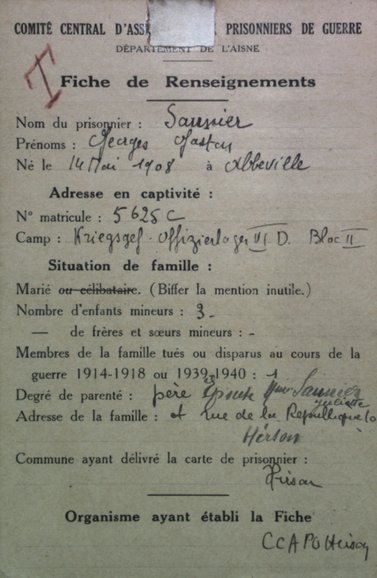 COMITÉ CENTRAL D'ASS PRISONNIERS DE GUERRE
DÉPARTEMENT DE L'AISNE
Fiche de Renseignements
Nom du prisonnier : Saunier
Prénoms : Georges Gaston
Né le 14 Mai 1908 à Abbeville
Adresse en captivité :
N° matricule : 5625 C
Camp : Kriegsgef-Offizierlager VI D. Bloc II
Situation de famille :
Marié ou célibataire. (Biffer la mention inutile.)
Nombre d'enfants mineurs : 3 -
— de frères et sœurs mineurs : -
Membres de la famille tués ou disparus au cours de la
guerre 1914-1918 ou 1939-1940 : 1
Degré de parenté : père Epouse Mme Saunier
Juliette
Adresse de la famille : rue de la République
Hirson
Commune ayant délivré la carte de prisonnier :
Hirson
Organisme ayant établi la Fiche
CCAPG Hirson